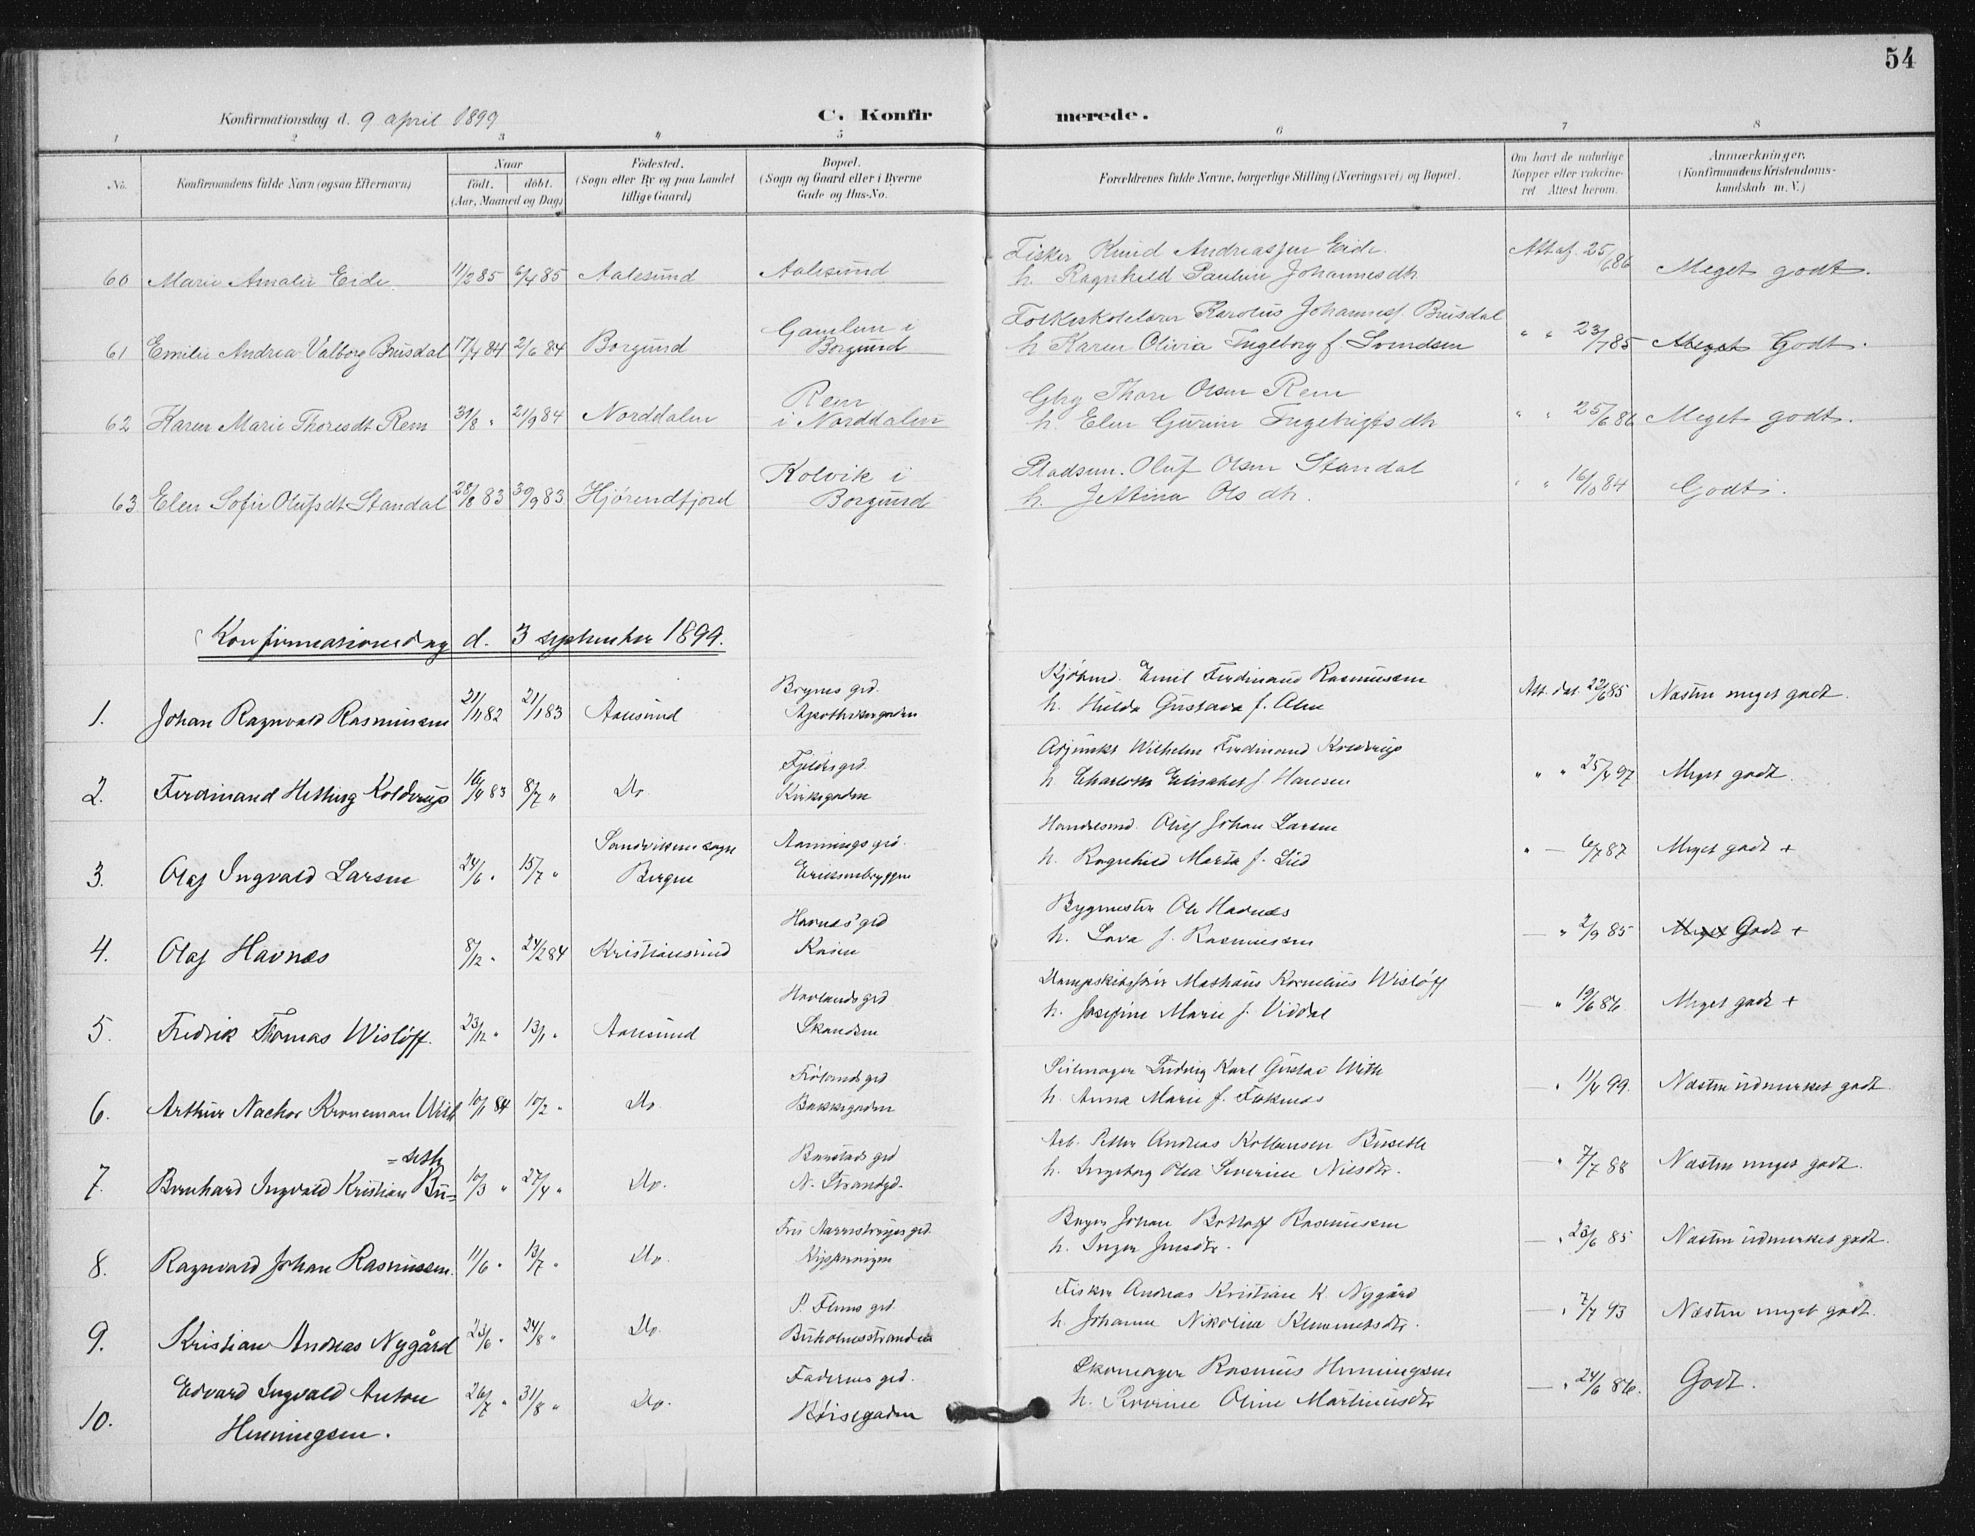 54
Konfirmationsdag d. 9 april 1899
C. Konfirmerede.
1 2 3 4 5 6 7 8
No.
Konfirmandens fulde Navn (ogsaa Efternavn)
Naar
født. døbt.
(Aar, Maaned og Dag)
Fødested.
(Sogn eller By og paa Landet
tillige Gaard)
Bopæl.
(Sogn og Gaard eller i Byerne
Gade og Hus-No.
Forældrenes fulde Navne, borgerlige Stilling (Næringsvei) og Bopæl.
Om havt de naturlige
Kopper eller vakcine-
ret Attest herom.
Anmærkninger.
(Konfirmandens Kristendoms-
kundskab m. V.)
Fisker Knud Andreassen Eide.
60 Marie Amalie Eide 11/2 85 6/4 85 Aalesund Aalesund h. Ragnhild Pauline Johannesdtr. Att af 25/6 86 Meget godt.
Gamlem i Folkeskolelærer Karolus Johannes. Brusdal
61 Emilie Andrea Valborg Brusdal 17/4 84 2/6 84 Borgund Borgund h Karen Olivia Ingeborg f. Svendsen " " 23/7 85 Meget Godt.
Rem Gbrg Thore Olsen Rem
62 Karen Marie Thoresdt Rem 31/8 " 21/9 84 Norddalen i Norddalen h. Elen Gurine Ingebrigtsdtr " " 25/6 86 Meget godt.
Kolvik i Pladsm. Oluf Olsen Standal
63 Elen Sofie Olufsdt Standal 28/8 83 30/9 83 Hjørendfjord Borgund h. Jettina Olsdtr. " " 16/10 84 Godt.
Konfirmasionsdag d. 3 september 1899.
Brynes grd. Kjøbmd. Emil Ferdinand Rasmussen
1. Johan Ragnvald Rasmussen 21/11 82 21/1 83 Aalesund Apothekergaden h. Hulda Gustava f. Alm Att. dat. 22/6 85 Næsten meget godt.
Fjeldes grd. Adjunkt Wilhelm Ferdinand Kolderup
2. Ferdinand Hetting Kolderup 16/4 83 8/7 " Do Kirkegaden h. Charlotte Elisabet f. Hansen " " 25/4 97 Meget godt.
Sandvikens sogn Aannings grd. Handelsmd. Oluf Johan Larsen
3. Olaf Ingvald Larsen 24/6 " 15/7 " Bergen Eriksenbryggen h. Ragnhild Marta f. Lid " — 6/7 87 Meget godt +
Havnæs' grd Bygmester Ole Havnæs
4. Olaf Havnæs 8/12 " 24/2 84 Kristiansund Kaien h. Lava f. Rasmussen — " 2/9 85 Meget Godt +
Hovlands grd. Dampskibsfører Mathæus Kornelius Wisløff
5. Fredrik Thomas Wisløff. 23/12 " 13/1 " Aalesund Skandsen h. Josefine Marie f. Viddal — " 19/6 86. Meget godt +
Frølands grd Seilmager Ludvig Karl Gustav With
6. Arthur Nachor Kroneman With 10/1 84 10/2 " Do. Bakkegaden h. Anna Marie f. Fiskenæs — " 11/4 99. Næsten udmerket godt.
=seth Barstads grd Arb. Petter Andreas Kolbensen Buseth
7. Bernhard Ingvald Kristian Bu= 10/3 " 27/4 " Do. N. Strandgd. h. Ingeborg Olea Severine Nilsdtr. — " 7/7 88 Næsten meget godt.
Bager Johan Rasmussen
8. Ragnvald Johan Rasmussen. 11/6 " 13/7 " Do. Kipervigen h. Inger Jensdtr. — " 23/6 85 Næsten udmerket godt.
P. Flems grd. Fisker Andreas Kristian K. Nygård
9. Kristian Andreas Nygård 23/6 " 24/8 " Do. Buholmsstranden h. Johanne Nikolina Klemmetsdtr. — " 7/7 93 Næsten meget godt.
Edvard Ingvald Anton 26/7 " 31/8 " Do. Fadernes grd. Skomager Rasmus Henningsen — " 24/6 86. Godt.
10. Henningsen. Kirsegaden h. Severine Oline Martinusdtr